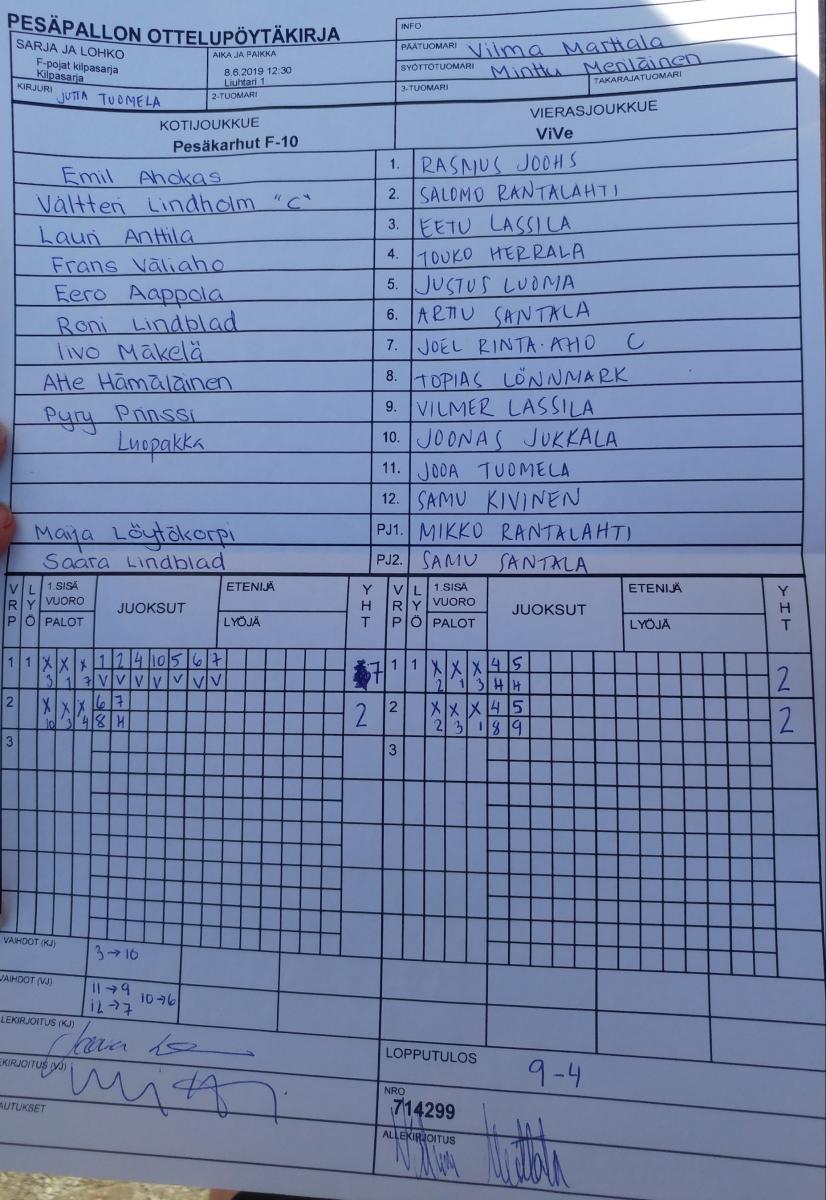 PESÄPALLON OTTELUPÖYTÄKIRJA
INFO
SARJA JA LOHKO
F-pojat kilpasarja
Kilpasarja
AIKA JA PAIKKA
8.6.2019 12:30
Liuhtari 1
PÄÄTUOMARI Vilma Marttala
SYÖTTÖTUOMARI Minttu Meriläinen
KIRJURI JUTTA TUOMELA
2-TUOMARI
3-TUOMARI
TAKARAJATUOMARI
KOTIJOUKKUE
Pesäkarhut F-10
VIERASJOUKKUE
ViVe
Emil Ahokas 1. RASMUS JOOHS
Valtteri Lindholm "C" 2. SALOMO RANTALAHTI
Lauri Anttila 3. EETU LASSILA
Frans Väliaho 4. TOUKO HERRALA
Eero Aappola 5. JUSTUS LUOMA
Roni Lindblad 6. ARTTU SANTALA
Iivo Mäkelä 7. JOEL RINTA-AHO C
Atte Hämäläinen 8. TOPIAS LÖNNMARK
Pyry Prinssi 9. VILMER LASSILA
Luopakka 10. JOONAS JUKKALA
11. JOOA TUOMELA
12. SAMU KIVINEN
Maija Löytökorpi PJ1. MIKKO RANTALAHTI
Saara Lindblad PJ2. SAMU SANTALA
VRP LYÖ 1.SISÄ VUORO PALOT JUOKSUT ETENIJÄ LYÖJÄ YHT VRP LYÖ 1.SISÄ VUORO PALOT JUOKSUT ETENIJÄ LYÖJÄ YHT
1 1 X X X 1 2 4 10 5 6 7 7 1 1 X X X 4 5 2
3 1 7 V V V V V V V 2 1 3 H H
2 X X X 6 7 2 2 X X X 4 5 2
10 3 4 8 H 2 3 1 8 9
3 3
VAIHDOT (KJ) 3→10
VAIHDOT (VJ) 11→9 10→6
12→7
LEKIRJOITUS (KJ)
EKIRJOITUS (VJ)
AUTUKSET
LOPPUTULOS 9-4
NRO
714299
ALLEKIRJOITUS